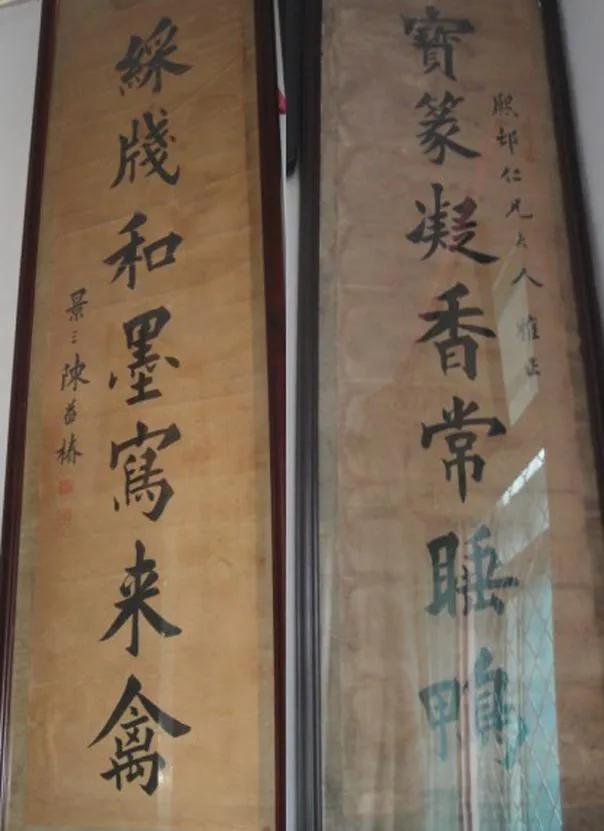 寶篆凝香常睡鴨
熙邨仁兄大人雅正
綵牋和墨寫来禽
景三陳椿